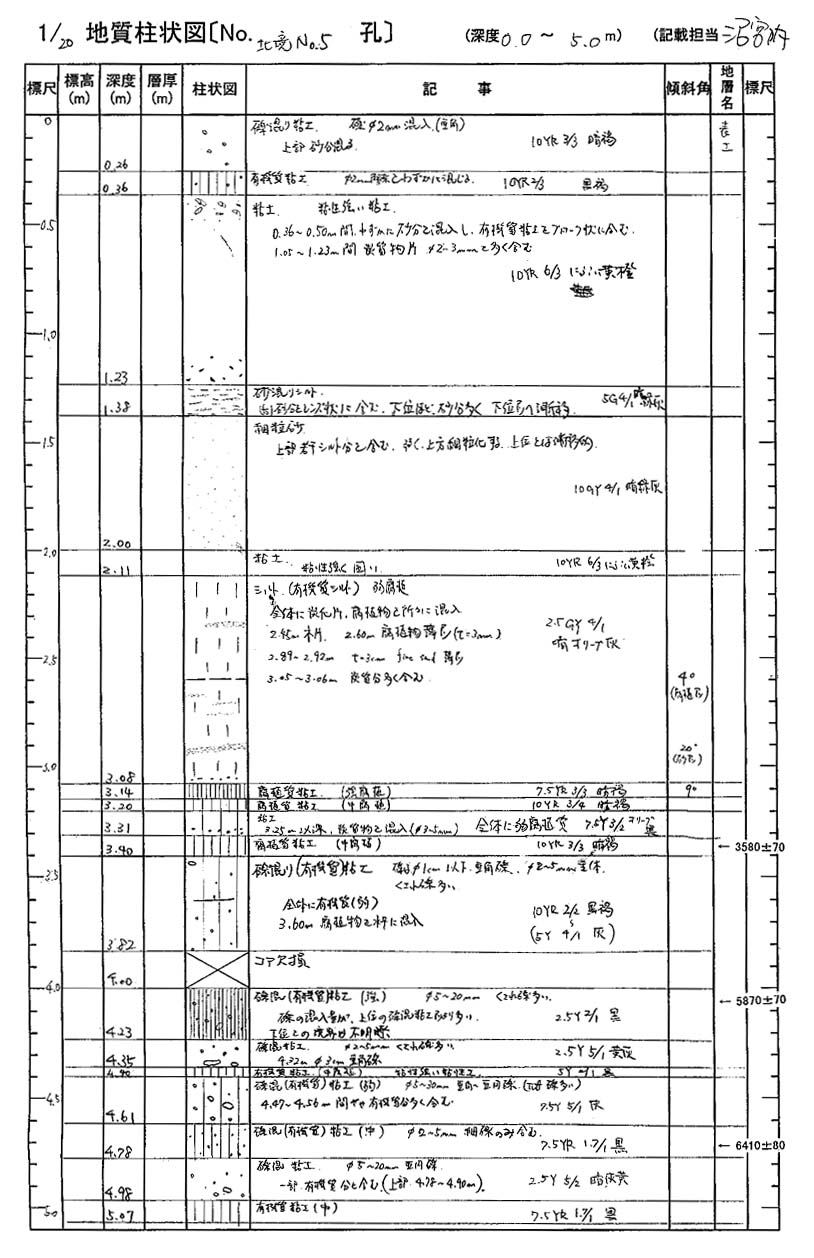 1/20 地質柱状図〔No. 北境No.5 孔〕 (深度0.0 ~ 5.0m) (記載担当
標尺 標高(m) 深度(m) 層厚(m) 柱状図 記事 傾斜角 地層名 標尺
0 礫混り粘土. 礫φ2mm混入.(亜角) 表土
上部砂分混る. 10YR 3/3 暗褐
0.26
有機質粘土 わずかに混じる. 10YR 2/3 黒褐
0.36
粘土. 粘性強い粘土.
0.5 0.36~0.50m間.わずかに砂分を混入し、有機質粘土をブロック状に含む.
1.05~1.23m間 炭質物片 φ2-3mmを多く含む
10YR 6/3 にぶい黄橙
1.0
1.23
砂混りシルト. 5G4/1暗緑灰
砂分をレンズ状に含む、下位ほど、砂分多く 下位層へ漸移.
1.38
細粒砂
1.5 上部若干シルト分を含む. 上方細粒化 上位とは漸移的.
10GY 4/1 暗緑灰
2.00
2.0 粘土. 10YR 6/3にぶい黄橙
粘性強く固い.
2.11
シルト.(有機質シルト) 弱腐植
全体に炭化片,腐植物を所々に混入 2.5GY 4/1
2.45m木片. 2.60m 腐植物薄層(t=3mm) 暗オリーブ灰
2.5 2.89~2.92m t=3cm fine sand 薄層
3.05~3.06m 炭質分多く含む. 4°
(腐植層)
20°
(砂層)
3.0
3.08
3.14 腐植質粘土. (強腐植) 7.5YR 3/3 暗褐 9°
3.20 腐植質粘土 (中腐植) 10YR 3/4 暗褐
粘土
3.31 3.25m以深,炭質物を混入(φ3-5mm) 全体に弱腐植質 7.5Y3/2 オリーブ黒
3.40 腐植質粘土 (中腐植) 10YR 3/3 暗褐 ← 3580±70
3.5 礫混り(有機質)粘土 礫はφ1cm以下.亜角礫.、φ2~5mm主体.
くされ礫多い.
全体に有機質(弱) 10YR 2/2 黒褐
3.60m 腐植物を混入 (5Y 4/1 灰)
3.82
コア欠損
4.00
4.0 礫混(有機質)粘土 (強) φ5~20mm くされ礫多い. ← 5870±70
礫の混入量が、上位の礫混粘土より多い. 2.5Y 2/1 黒
4.23 下位との境界は不明瞭
礫混粘土. φ2~5mm くされ礫多い
4.35 4.32m φ3cm 亜角礫 2.5Y 5/1 黄灰
4.40 有機質粘土(中腐植) 粘性強い粘土 5Y 2/1 黒
礫混(有機質)粘土(弱) φ5~30mm 亜角~亜円礫.
4.5 4.47~4.56m間やや有機質分多く含む 7.5Y 5/1 灰
4.61
礫混(有機質)粘土(中) φ2~5mm 細礫のみ含む.
4.78 7.5YR 1.7/1 黒 ← 6410±80
礫混 粘土. φ5~20mm 亜円礫
一部.有機質分を含む.(上部.4.78~4.90m). 2.5Y 5/2 暗灰黄
4.98
5.0 有機質粘土(中)
5.07 7.5YR 1.7/1 黒